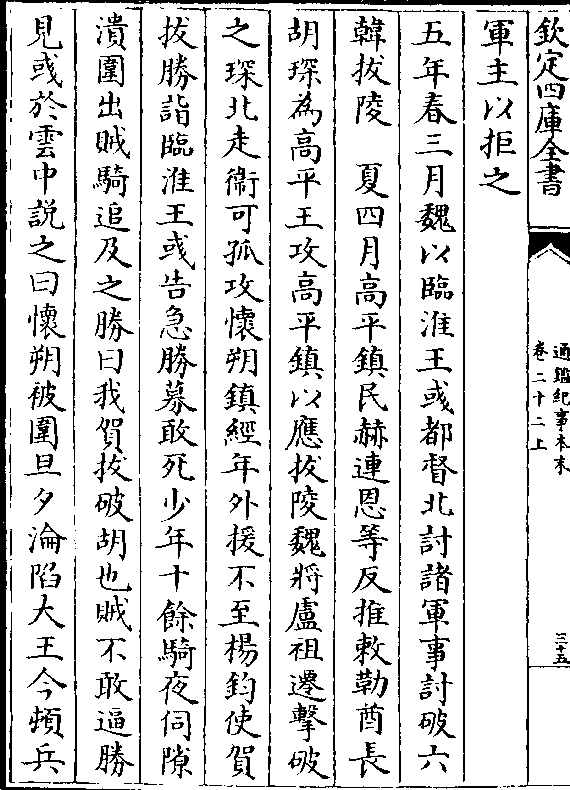 欽定四庫全書
通鑑紀事本末
卷二十二上
三十五
軍主以拒之
五年春三月魏以臨淮王彧都督北討諸軍事討破六
韓拔陵　夏四月高平鎮民赫連恩等反推敕勒酋長
胡琛為高平王攻高平鎮以應拔陵魏將盧祖遷擊破
之琛北走衞可孤攻懷朔鎮經年外援不至楊鈞使賀
拔勝詣臨淮王彧告急勝募敢死少年十餘騎夜伺隙
潰圍出賊騎追及之勝曰我賀拔破胡也賊不敢逼勝
見彧於雲中說之曰懷朔被圍旦夕淪陷大王今頓兵